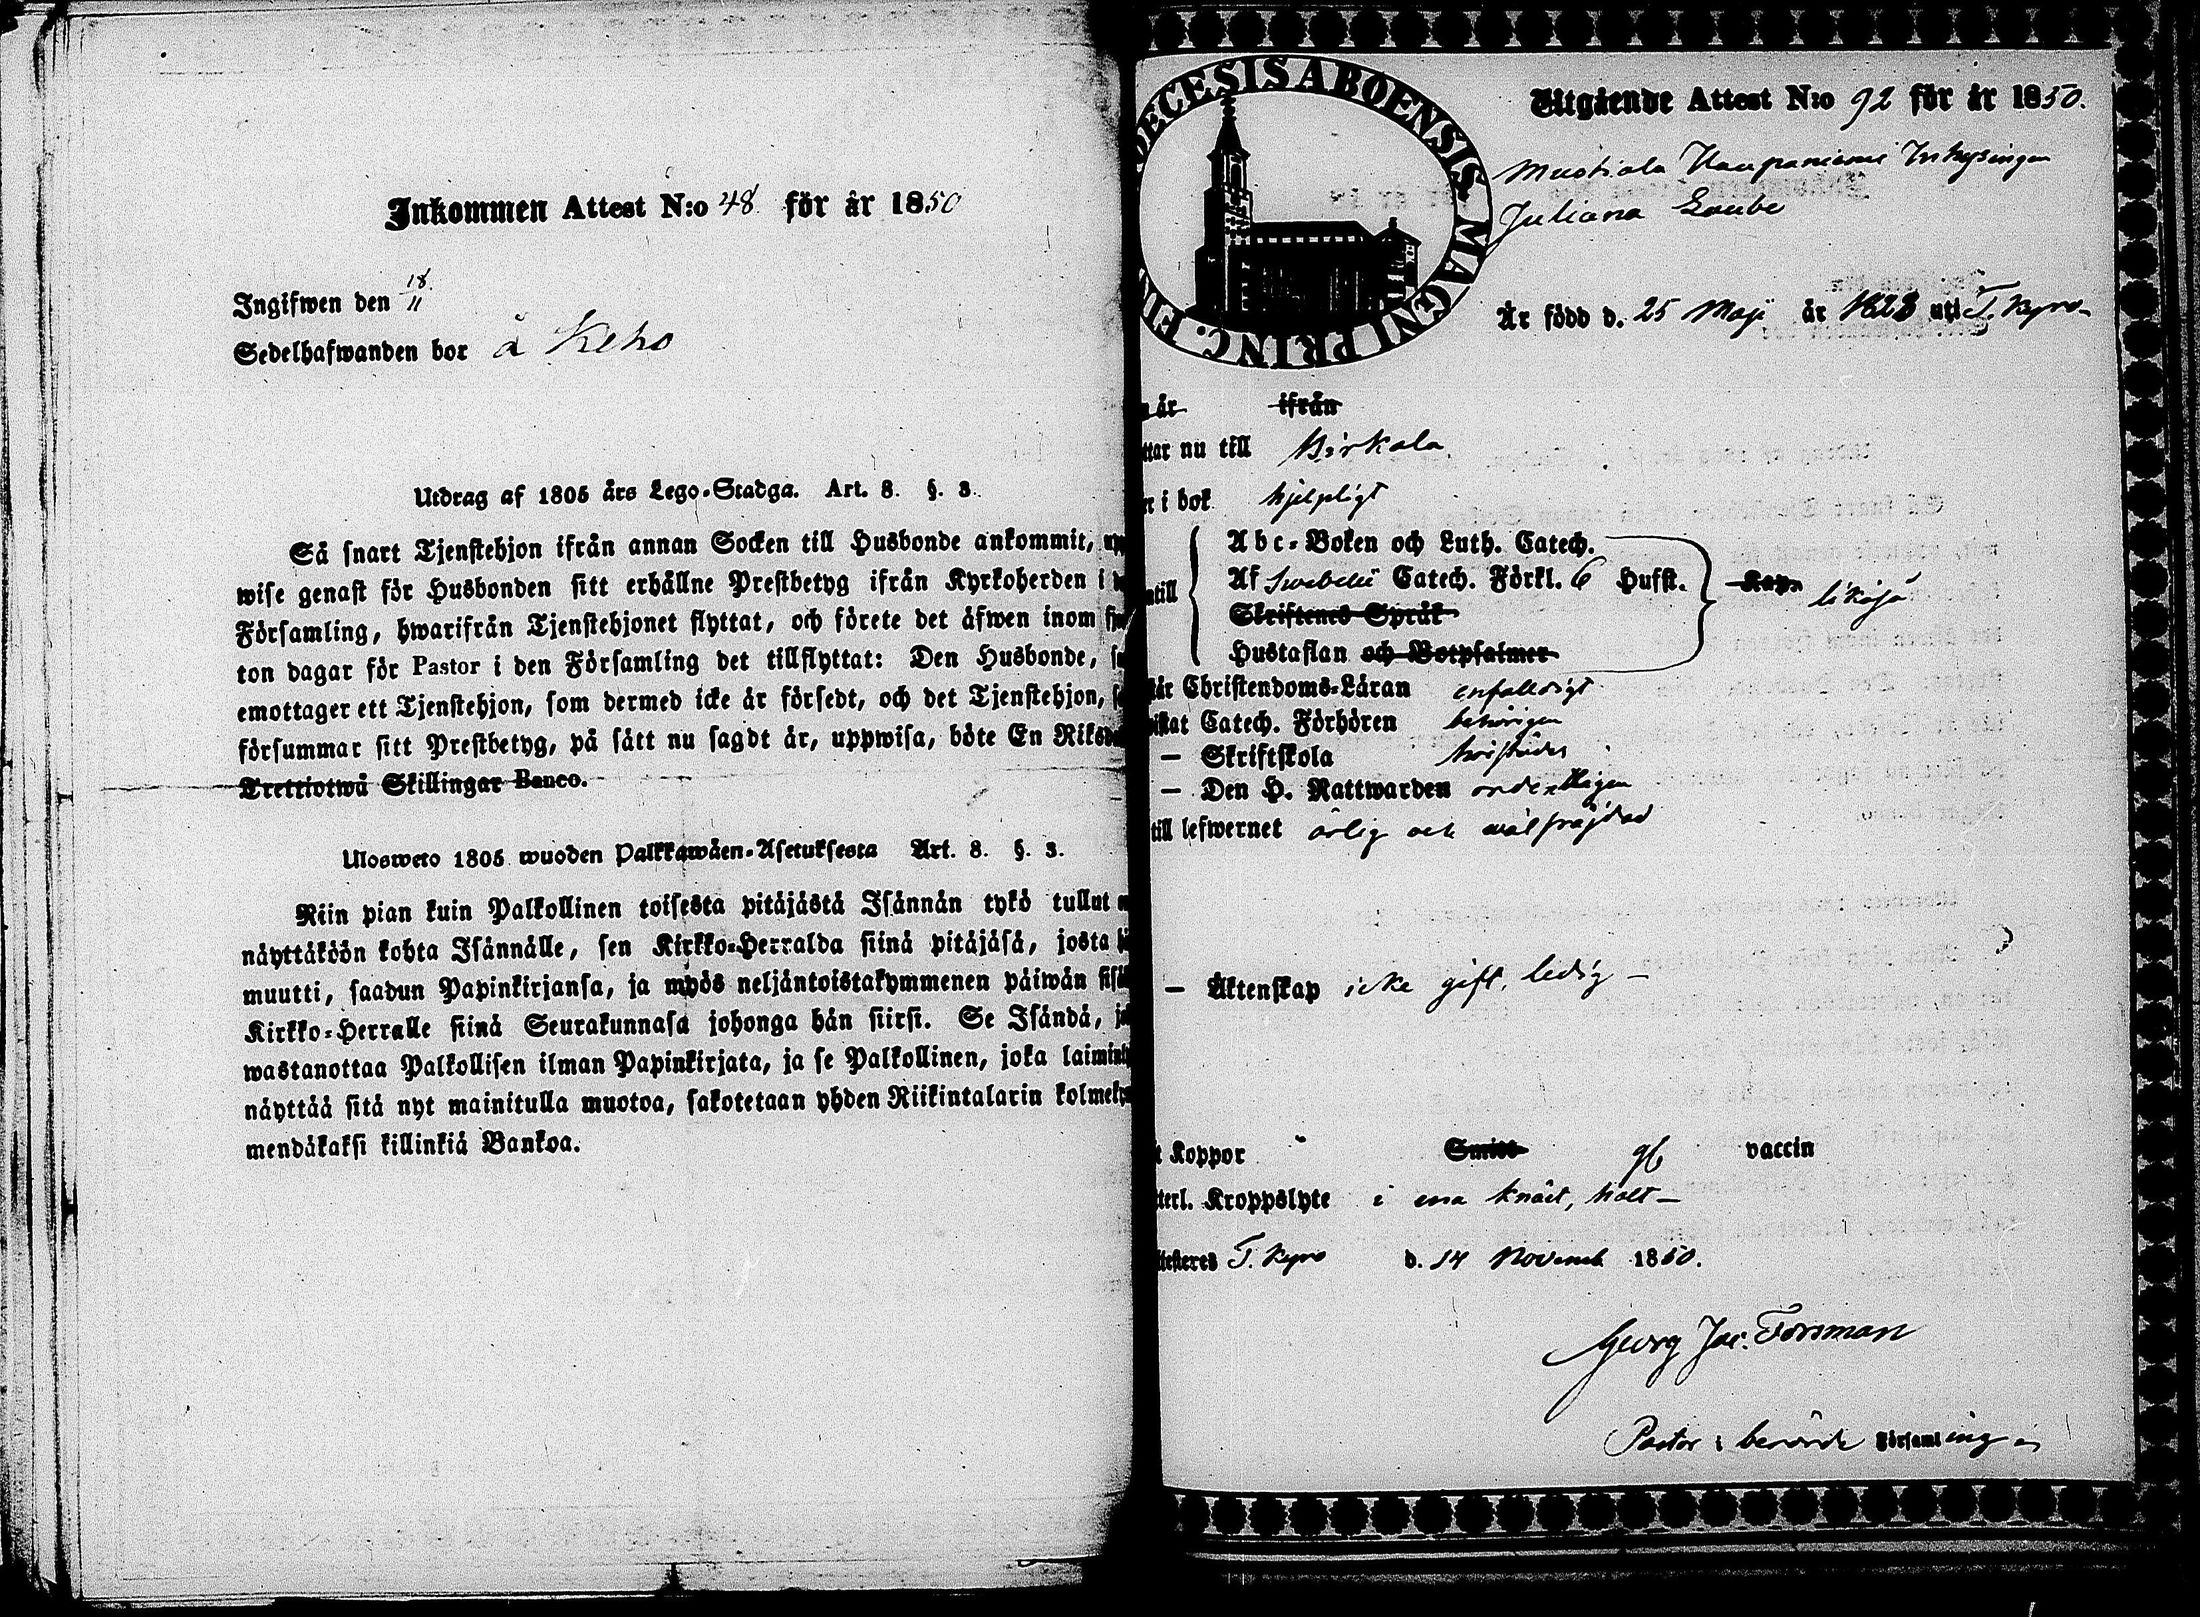 Inkommen Attest N:o 48. för år 1850
Ingifwen den 18/11
Sedelhafwanden bor å Keho
Utdrag af 1805 års Lego-Stadga. Art. 8. §. 3.
Så snart Tjenstehjon ifrån annan Socken till Husbonde ankommit, upp
wise genast för Husbonden sitt erhållne Prestbetyg ifrån Kyrkoherden i
Församling, hwarifrån Tjenstehjonet flyttat, och förete det äfwen inom fjor
ton dagar för Pastor i den Församling det tillflyttat: Den Husbonde,
emottager ett Tjenstehjon, som dermed icke är försedt, och det Tjenstehjon,
försummar sitt Prestbetyg, på sätt nu sagdt är, uppwisa, böte En Riksd
Trettiotwå Skillingar Banco.
Ulosweto 1805 wuoden Palkkawäen-Asetuksesta Art. 8. §. 3.
Niin pian kuin Palkollinen toisesta pitäjästä Isännän tykö tullut
näyttäköön kohta Isännälle, sen Kirkko-Herralda siinä pitäjäsä, josta
muutti, saadun Papinkirjansa, ja myös neljäntoistakymmenen päiwän sisä
Kirkko-Herralle siinä Seurakunnasa johonga hän siirsi. Se Isändä,
wastanottaa Palkollisen ilman Papinkirjata, ja se Palkollinen, joka laimin
näyttää sitä nyt mainitulla muotoa, sakotetaan yhden Riikintalarin kolmeky
mendäkaksi killinkiä Bankoa.
DECESIS ABOENSIS. MAGNI PRINC. FIN
Utgående Attest N:o 92 för år 1850.
Mustiala Inhysingen
Juliana
Är född d. 25 Maji år 1823 uti T. Kyro
år ifrån
ttar nu till Birkala.
r i bok hjelpligt
Abc-Boken och Luth. Catech.
ntill Af Swebelii Catech. Förkl. 6 Hufst. Kap. likaså
Skriftenes Språk
Hustaflan och Botpsalmer
tår Christendoms-Läran enfaldigt
istat Catech. Förhören behörigen
— Skriftskola
— Den H. Nattwarden ordentligen
till lefwernet ärlig och wälfräjdad
— Äktenskap icke gift, ledig —
t Koppor Smitt gb vaccin
tterl. Kroppslyte i ena knäet, halt —
ttesteres T. Kyro d. 14 Novemb 1850.
Georg Jac. Forsman
Pastor i berörde Församlingen